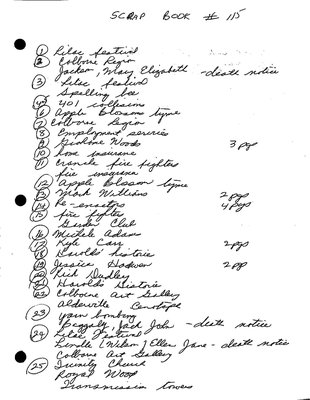 SCRAP BOOK # 115
① Lilac festival
② Colborne Legion
Jackson, Mary Elizabeth - death notice
③ Lilac festival
Spelling bee
④ 401 collisions
⑥ Apple Blossom tyme
⑦ Colborne Legion
⑧ Employment services
⑨ Woods 3 pgs
⑩ home insurance
⑪ Cramahe fire fighter
fire insurance
⑫ Apple Blossom tyme
⑬ Mark Williams 2 pgs
⑭ Re-enactors 4 pgs
⑮ fire fighter
Garden Club
⑯ Michele Adams
⑰ Kyle Carr 2 pgs
⑱ Harold's histories
⑲ Jessica 2 pgs
⑳ Rick Dudley
㉑ Harold's Histories
㉒ Colborne Art Gallery
Alderville Cenotaph
㉓ yarn bombing
Jack John - death notice
㉔ Lilac Festival
[Wilson] Ellen Jane - death notice
Colborne Art Gallery
㉕ Trinity Church
Royal Wood
Transmission towers